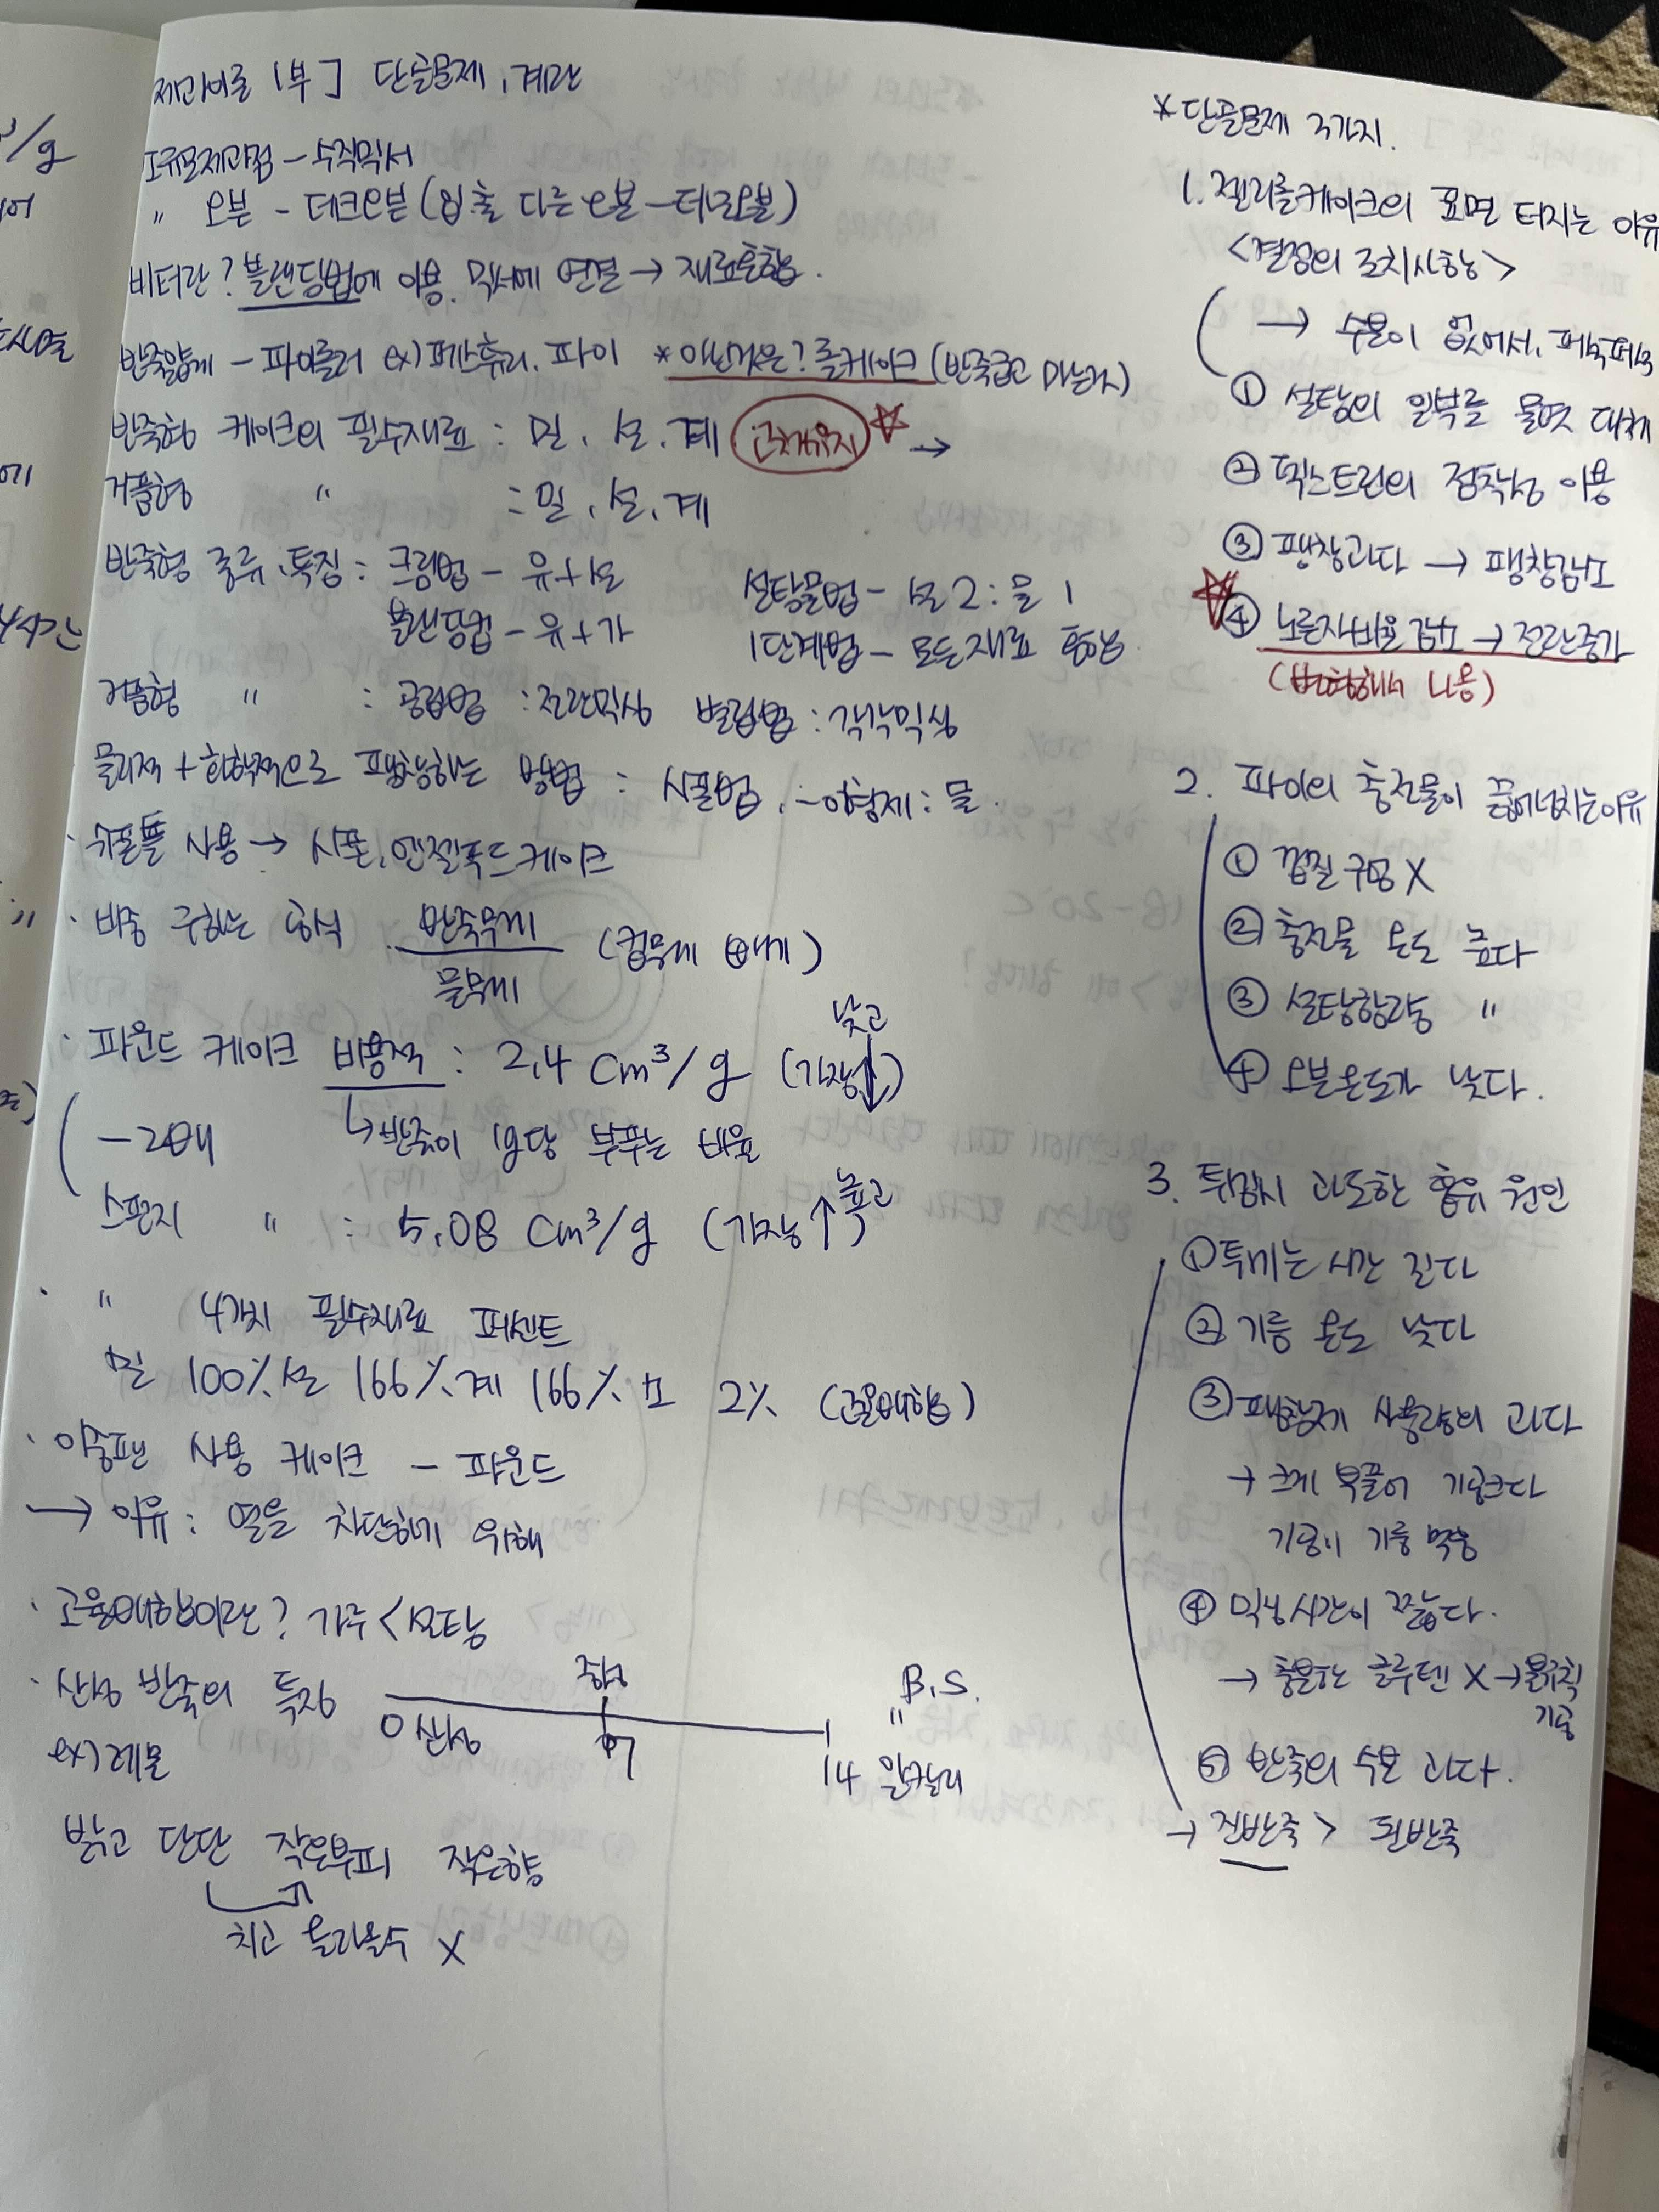 제과이론 1부] 단골문제, 계란
소규모제과점 - 수직믹서
〃 오븐 - 데크오븐 (입.출 다른 오븐 - 터널오븐)
비터란? 블랜딩법에 이용. 믹서에 연결 → 재료혼합.
반죽얇게 - 파이롤러 ex) 페스츄리. 파이 * 아닌것은? 롤케이크 (반죽굽고 마는거)
반죽형 케이크의 필수재료 : 밀, 설, 계 고체유지 ☆ →
거품형 〃 : 밀, 설, 계
반죽형 종류, 특징 : 크림법 - 유+설 설탕물법 - 설 2 : 물 1
블랜딩법 - 유+가 1단계법 - 모든재료 혼합.
거품형 〃 : 공립법 : 전란믹싱 별립법 : 각각믹싱
물리적 + 화학적으로 팽창하는 방법 : 시폰법, - 이형제 : 물.
· 쉬폰틀 사용 → 시폰, 엔젤푸드케이크
· 비중 구하는 공식 반죽무게 / 물무게 (컵무게 빼기)
· 파운드 케이크 비용적 : 2,4 cm³/g (가장↓) 낮고
- 2배 ↳ 반죽이 1g당 부푸는 비율
스펀지 〃 : 5,08 cm³/g (가장↑) 높고
· 〃 4가지 필수재료 퍼센트
밀 100%, 설 166%, 계 166%, 소 2% (고율배합)
· 이중팬 사용 케이크 - 파운드
→ 이유 : 열을 차단하기 위해
· 고율배합이란? 가루 < 설탕
· 산성 반죽의 특징
ex) 레몬
0 산성
중성
7
B.S.
〃
14 알칼리
밝고 단단 작은부피 작은향
치고 올라올수 X
*단골문제 3가지.
1. 젤리롤케이크의 표면 터지는 이유
<결점의 조치사항>
→ 수분이 없어서, 퍼석퍼석
① 설탕의 일부를 물엿 대체
② 덱스트린의 점착성 이용
③ 팽창과다 → 팽창감소
☆ ④ 노른자비율 감소 → 전란증가
(변형해서 나옴)
2. 파이의 충전물이 끓어넘치는이유
① 껍질 구멍 X
② 충전물 온도 높다
③ 설탕함량 〃
④ 오븐온도가 낮다.
3. 튀김시 과도한 흡유 원인
① 튀기는 시간 길다
② 기름 온도 낮다
③ 팽창제 사용량의 과다
→ 크게 부풀어 기공크다
기공이 기름 먹음
④ 믹싱시간이 짧다.
→ 충분한 글루텐 X → 불규칙
기공
⑤ 반죽의 수분 과다.
→ 진반죽 > 된반죽